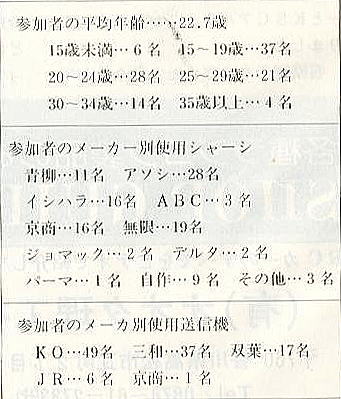 参加者の平均年齢……22.7歳
15歳未満…6名 15～19歳…37名
20～24歳…28名 25～29歳…21名
30～34歳…14名 35歳以上…4名
参加者のメーカー別使用シャーシ
青柳…11名 アソシ…28名
イシハラ…16名 ABC…3名
京商…16名 無限…19名
ジョマック…2名 デルタ…2名
パーマ…1名 自作…9名 その他…3名
参加者のメーカ別使用送信機
KO…49名 三和…37名 双葉…17名
JR…6名 京商…1名